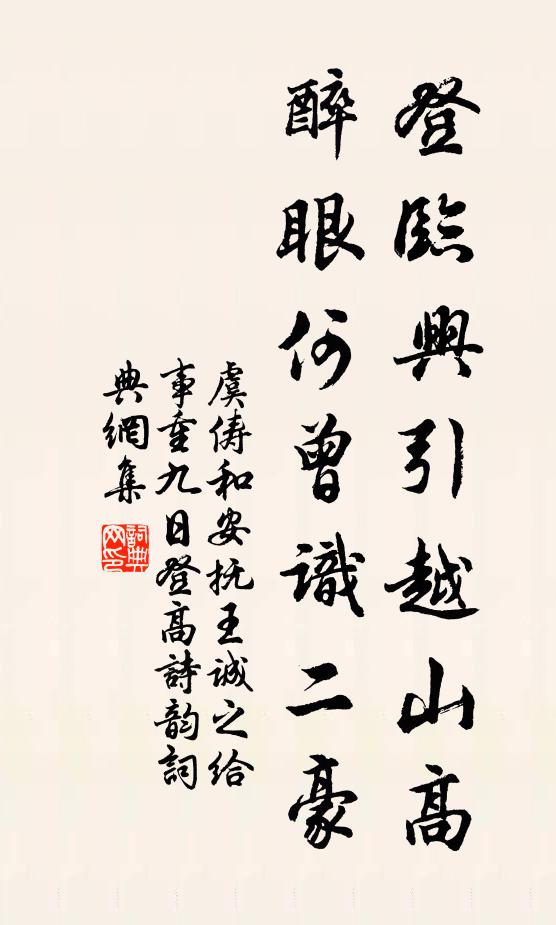 登臨興引越山高
醉眼何曾識二豪
虞儔和安抚王誠之给
事重九日登高詩韵詞
典網集
詞典
网印